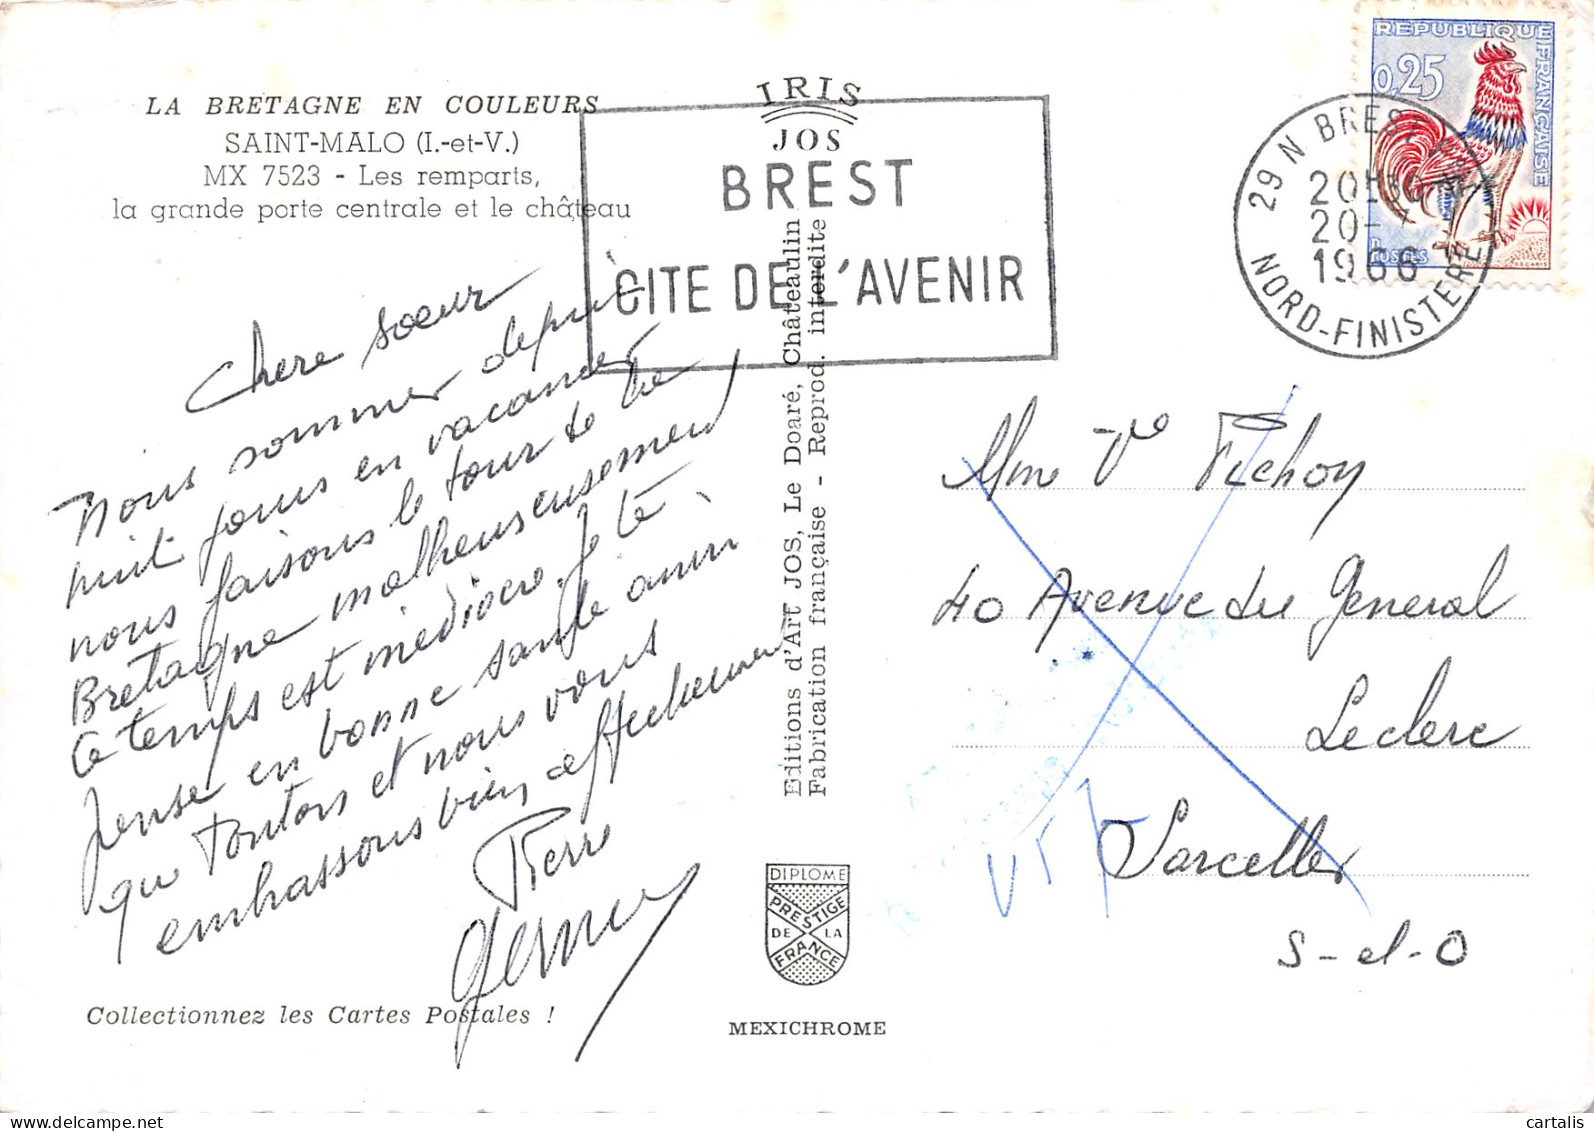 LA BRETAGNE EN COULEURS
SAINT-MALO (I.-et-V.)
MX 7523 - Les remparts,
la grande porte centrale et le château
IRIS
JOS
BREST
CITE DE L'AVENIR
29 N BREST
20-
1966
NORD-FINISTERE
REPUBLIQUE FRANÇAISE
0,25
POSTES
Chere soeur
Nous sommes depuis
huit jours en vacances
nous faisons le tour de la
Bretagne malheureusement
le temps est médiocre. Je te
pense en bonne santé ainsi
que Tonton et nous vous
embrassons bien affectueusement
Pierre
Collectionnez les Cartes Postales !
Editions d'Art JOS, Le Doaré, Châteaulin
Fabrication française - Reprod. interdite
DIPLOME
PRESTIGE
DE LA
FRANCE
MEXICHROME
Mme Vve Fichon
40 Avenue du General
Leclerc
Sarcelles
S-et-O
cartalis